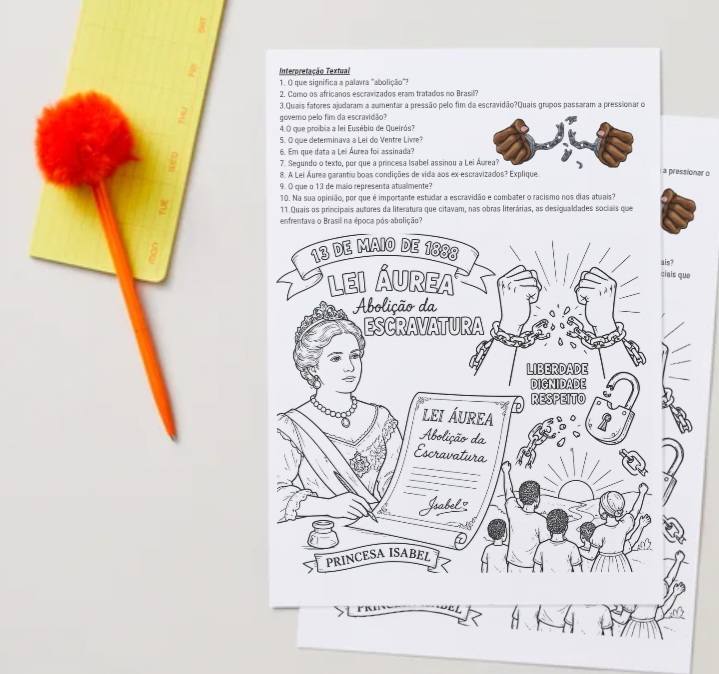 SAT
FRI
THU
WED
TUE
mon
Interpretação Textual
1. O que significa a palavra "abolição"?
2. Como os africanos escravizados eram tratados no Brasil?
3.Quais fatores ajudaram a aumentar a pressão pelo fim da escravidão?Quais grupos passaram a pressionar o
governo pelo fim da escravidão?
4.O que proibia a lei Eusébio de Queirós?
5. O que determinava a Lei do Ventre Livre?
6. Em que data a Lei Áurea foi assinada?
7. Segundo o texto, por que a princesa Isabel assinou a Lei Áurea?
8. A Lei Áurea garantiu boas condições de vida aos ex-escravizados? Explique.
9. O que o 13 de maio representa atualmente?
10. Na sua opinião, por que é importante estudar a escravidão e combater o racismo nos dias atuais?
11.Quais os principais autores da literatura que citavam, nas obras literárias, as desigualdades sociais que
enfrentava o Brasil na época pós-abolição?
13 DE MAIO DE 1888
LEI ÁUREA
Abolição da
ESCRAVATURA
LIBERDADE
DIGNIDADE
RESPEITO
LEI ÁUREA
Abolição da
Escravatura
Isabel
PRINCESA ISABEL
a pressionar o
ais?
ciais que
PRINCESA ISABEL